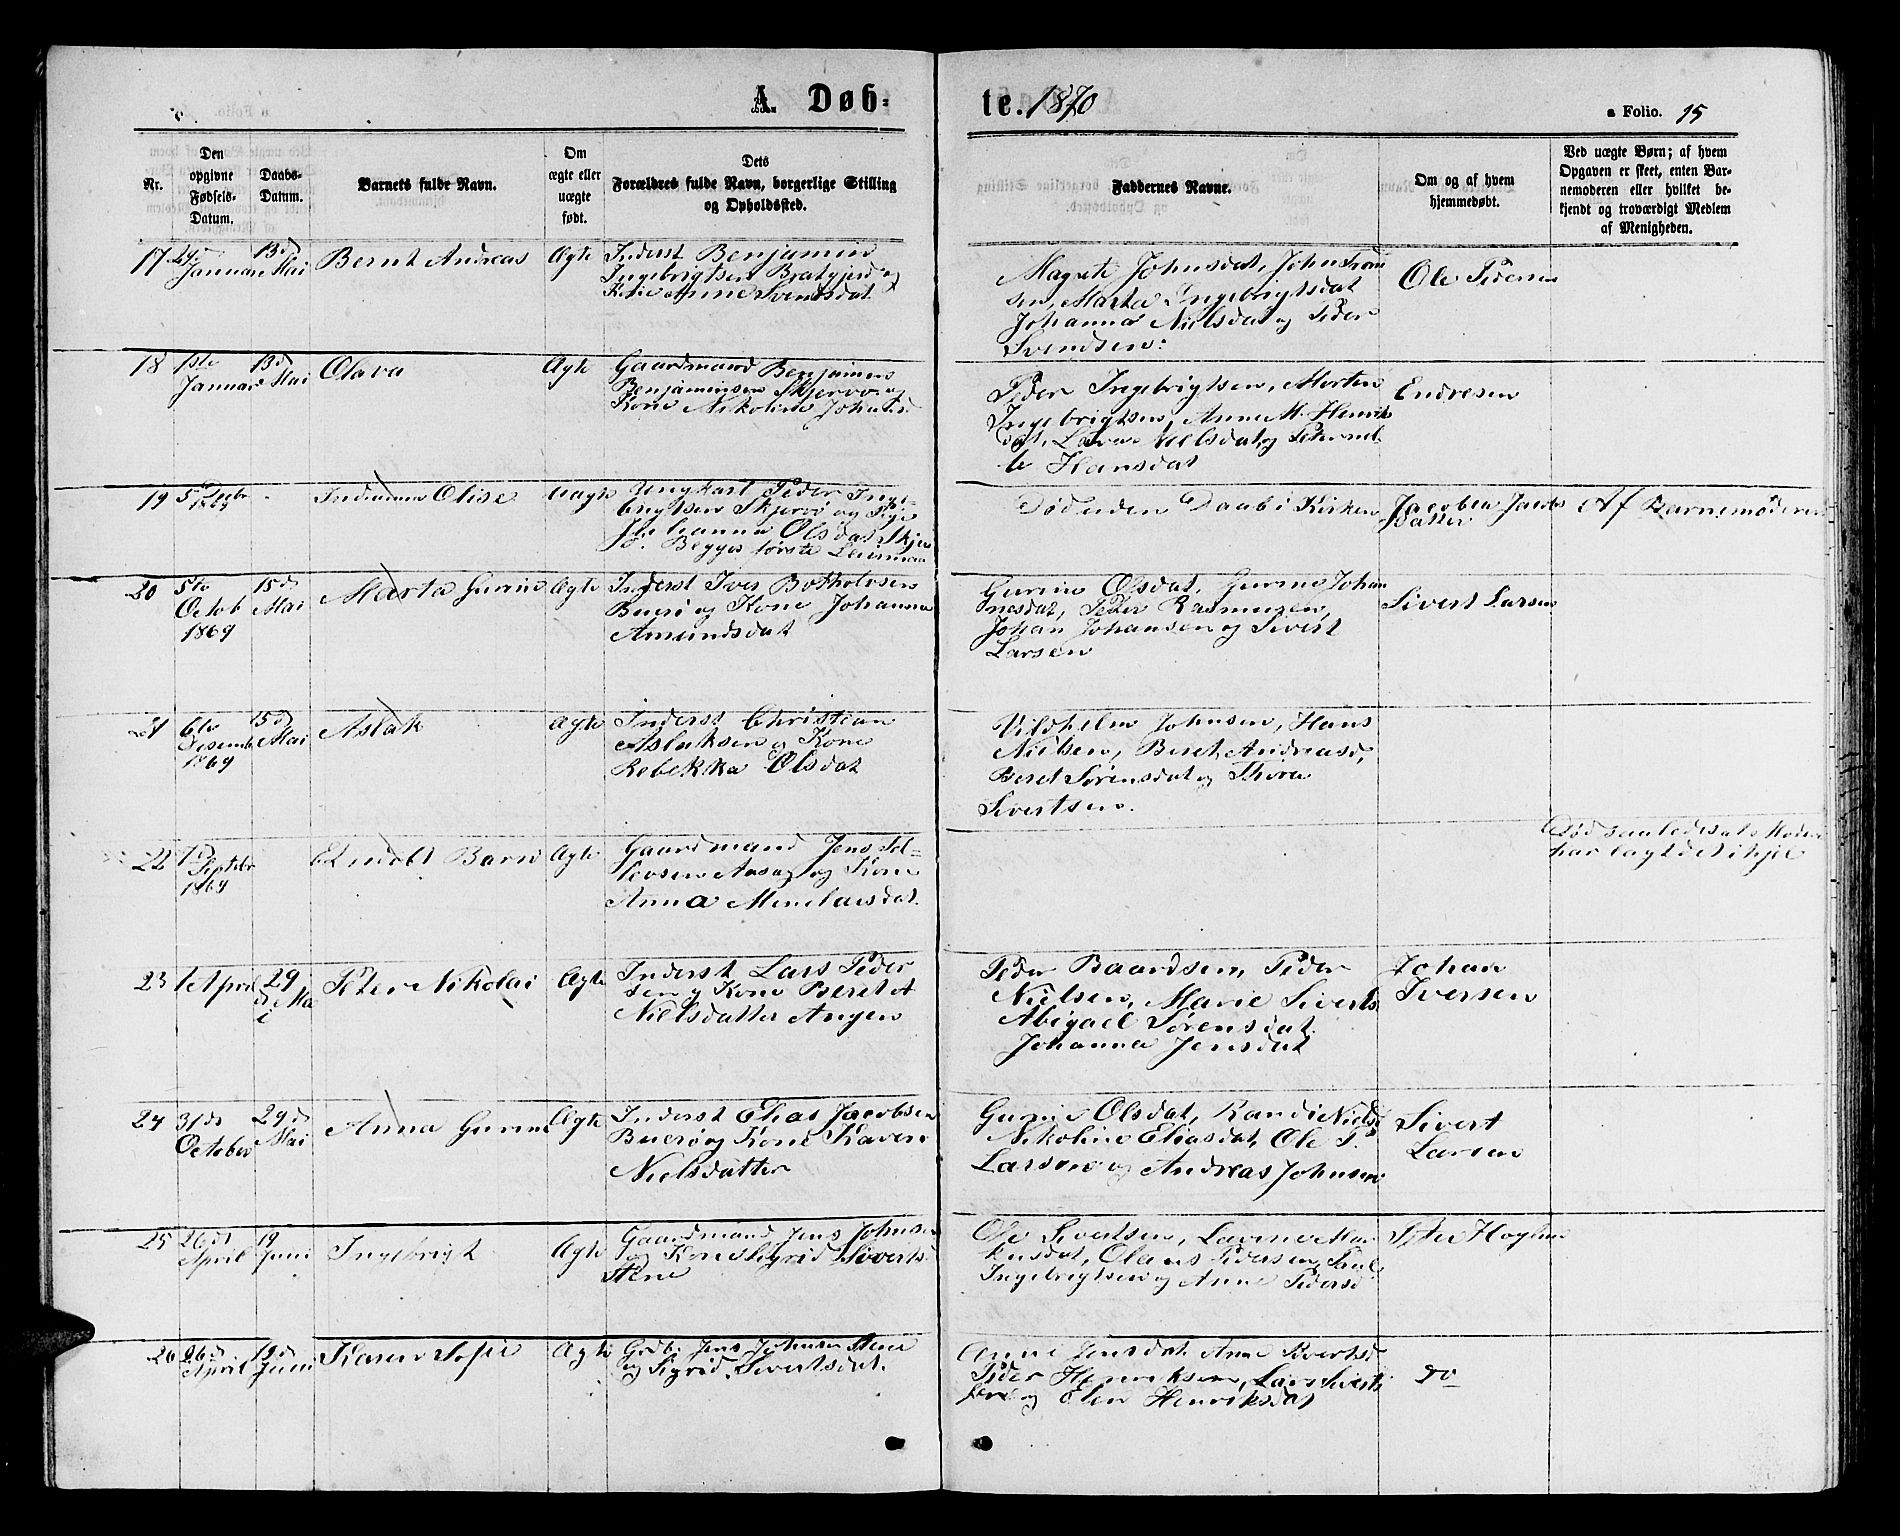 A. Døb=
te. 1870
a Folio. 15
Nr.
Den
opgivne
Fødsels-
Datum.
Daabs-
Datum.
Barnets fulde Navn.
Om
ægte eller
uægte
født.
Dets
Forældres fulde Navn, borgerlige Stilling
og Opholdssted.
Faddernes Navne.
Om og af hvem
hjemmedøbt.
Ved uægte Børn; af hvem
Opgaven er skeet, enten Bar-
nemoderen eller hvilket be-
kjendt og troværdigt Medlem
af Menigheden.
17
Januar
13d
Mai
Bernt Andreas
Ægte
Inderst Benjamin
Ingebrigtsen
Kone Anne Svendsdat
Magrete Johnsdat, John
sen, Marta Ingebrigtsdat
Johanna Nielsdat og Peder
Svendsen:
Ole
18
1ste
Januar
13d
Mai
Olava
Ægte
Gaardmand Benjamin
Benjaminsen Skjervø og
Kone Nikoline
Peder Ingebrigtsen, Morten
Ingebrigtsen, Anne M. Henrik
dat, Nielsdat og
Hansdat
Endresen
19
5
1869
Olise
Uægte
Ungkarl Peder Inge-
brigtsen Skjervø og Pige
Johanna Olsdat
Begges første Leiermaal
Død uden Daab i Kirken
Jacobea
Datter
Af Barnemoderen
20
5te
Octob
1869
15d
Mai
Marta Gurine
Ægte
Inderst Iver
og Kone Johanna
Amundsdat
Gurine Olsdat, Gurine Johan
nesdat, Peder Rasmusen,
Johan Johansen og Sivert
Larsen
Sivert Larsen
21
6te
Desemb
1869
15d
Mai
Aslak
Ægte
Inderst Christian
Aslaksen og Kone
Rebekka Olsdat
Vildhelm Johnsen, Hans
Nielsen, Beret Andreasd,
Beret Sørensdat og Thora
Sivertsen.
22
7d
Septbr
1869
Et udøbt Barn
Ægte
Gaardmand Jens Tol-
levsen og Kone
Anna
Død saaledes at Moderen
har lagt det ihjel
23
1 April
29
d Ma
i
Peter Nikolai
Ægte
Inderst Lars Peder
sen og Kone Beret
Nielsdatter Angen
Peder Baardsen, Peder
Nielsen, Marie Siverts
Abigael Sørensdat
Johanna Jensdat
Johan
Iversen
24
31d
October
29d
Mai
Anna Gurine
Ægte
Inderst Elias Jacobsen
og Kone Karen
Nielsdatter
Gurine Olsdat, Randi Niels
Nikoline Eliasdat, Ole P.
Larsen og Andreas Johnsen
Sivert
Larsen
25
26d
April
19
Juni
Ingebrigt
Ægte
Gaardmand Jens Johnsen
og Kone Sigrid Siverts
Stene
Ole Sivertsen,
Olaus Pedersen,
Ingebrigtsen og Anne Pedersd
26
26d
April
19d
Juni
Karen Sofie
Ægte
Jens Johnsen Stene
og Sigrid Sivertsdat.
Anne Jensdat, Anne
Peder Henriksen, Lars Siverts
og Elen Henriksdat
Do